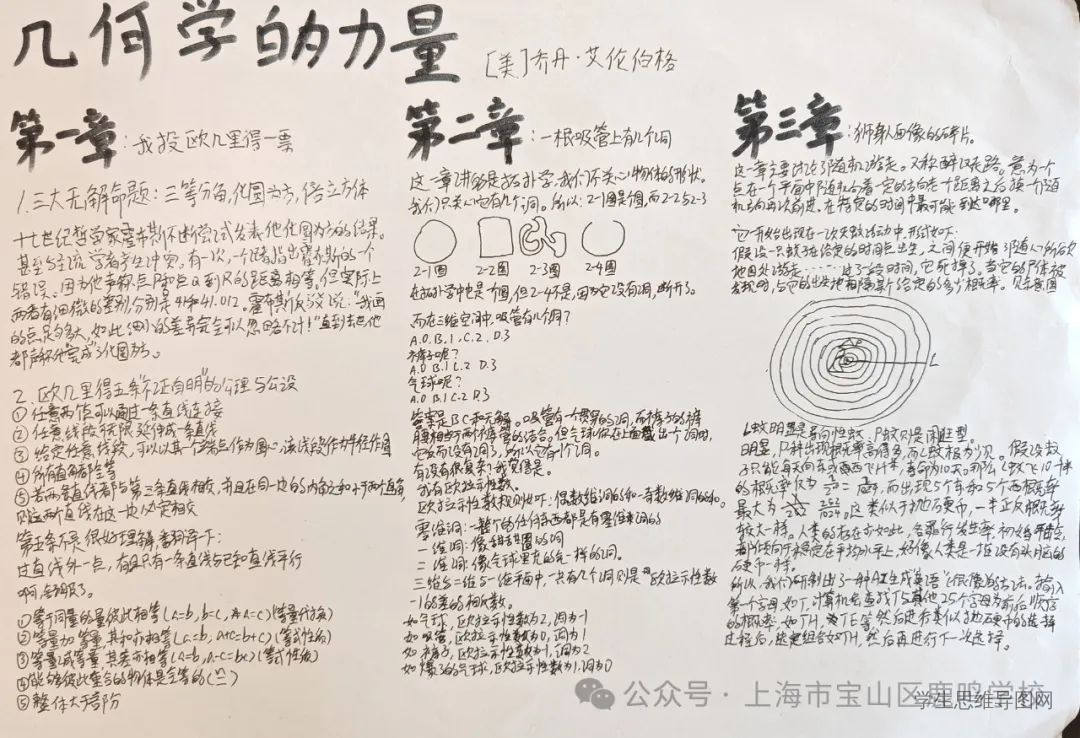 几何学的力量
[美]乔丹·艾伦伯格
第一章:我投欧几里得一票
1.三大无解命题:三等分角,化圆为方,倍立方体
十七世纪哲学家霍布斯不断尝试发表他化圆为方的结果。
甚至与主流学者产生冲突。有一次,一个人指出霍布斯的一个
错误。因为他声称点P和点Q到R的距离相等。但实际上
两者有细微的差别,分别是41和41.012。霍布斯反驳说:"我画
的点足够大,如此细小的差异完全可以忽略不计!"直到去世他
都声称他"完成"了化圆为方。
2.欧几里得五条"不证自明"的公理与公设
①任意两点可以通过一条直线连接
②任意线段能无限延伸成一条直线
③给定任意线段,可以以其一个端点作为圆心,该线段作为半径作圆
④所有直角都全等
⑤若两条直线都与第三条直线相交,并且在同一边的内角之和小于两个直角
则这两直线在这一边必定相交
第五条不是很好理解,翻译下:
过直线外一点,有且只有一条直线与已知直线平行
啊,舒服了。
①等于同量的量彼此相等(a=b,b=c,则a=c)(等量代换)
②等量加等量,其和亦相等(a=b,a+c=b+c)(等式性质)
③等量减等量,其差亦相等(a=b,a-c=b-c)(等式性质)
④能够彼此重合的物体是全等的(≌)
⑤整体大于部分
第二章:一根吸管上有几个洞
这一章讲的是拓扑学,我们不关心物体的形状。
我们只关心它有几个洞。所以:2-1图是圆,而2-2与2-3
2-1图 2-2图 2-3图 2-4图
在拓扑学中也是个圆,但2-4不是,因为它没有洞,断开了。
而在三维空间中,吸管有几个洞?
A.0 B.1 C.2 D.3
裤子呢?
A.0 B.1 C.2 D.3
气球呢?
A.0 B.1 C.2 D.3
答案是BC和无解。吸管有一个贯穿的洞,而裤子的裤
腿相当于两个吸管的结合。但气球你在上面戳出一个洞,
它反而没有洞了,所以它有个洞。
有没有很复杂?我觉得是。
我有欧拉示性数。
欧拉示性数规则如下:偶数维洞的和-奇数维洞的和。
零维洞:一整个的任何东西都是有零维洞的
一维洞:像甜甜圈的洞
二维洞:像气球里充的气一样的洞。
三维与二维与一维平面中,一共有几个洞则是"欧拉示性数
-1的差的相反数。
如气球,欧拉示性数为2,洞为-1
如吸管,欧拉示性数为0,洞为1
如裤子,欧拉示性数为-1,洞为2
如爆了的气球,欧拉示性数为1,洞为0
第三章:狮身人面像的碎片。
这一章主要讨论了随机游走。又称醉汉走路。意为一个
点在一个平面中随机沿着一定的方向走一个距离之后换一个随
机方向再次前进。在特定的时间中最可能到达哪里。
它一开始出现在一次灭蚊活动中,形式如下:
假设一只蚊子在给定的时间点出生,之后便开始
地四处游走……过了一段时间,它死掉了。当它的尸体被
发现时,与它的出生地相隔某个给定的多少概率。见示意图
L
P
L蚊明显是导向性蚊,P蚊则是闲逛型。
明显,P种出现概率高得多,而L蚊极为少见。假设蚊
子只能每天向东或向西飞1千米,寿命为10天。那么L蚊飞10千米
的概率仅为 = 1/1024,而出现5个东和5个西概率
最大为 252/1024。这类似于抛硬币中,一半正反概率
较大一样。人类的存在亦如此,
都倾向于稳定在平均水平上,好像人类是一堆没有头脑的
硬币一样。
所以,我们研制出了一种AI生成"英语"(很像的)方法。输入
第一个字母,如T,计算机会查找T与其他25个字母前后顺序
的概率:如TH、TE等,然后进行类似于抛硬币的选择
过程后,选定组合如TH,然后再进行下一次选择。
公众号·上海市宝山区鹿鸣学校
学生思维导图网